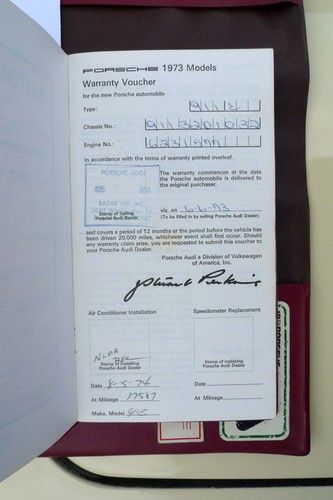 PORSCHE 1973 Models
Warranty Voucher
for the new Porsche automobile
Type:
Chassis No.:
Engine No.:
In accordance with the terms of warranty printed overleaf.
PORSCHE-AUDI
405
RADER VW, INC.
Stamp of Selling
Porsche Audi Dealer
The warranty commences at the date
the Porsche automobile is delivered to
the original purchaser,
viz. on 6-6-73
(To be filled in by selling Porsche Audi Dealer)
and covers a period of 12 months or the period before the vehicle has
been driven 20,000 miles, whichever event shall first occur. Should
any warranty claim arise, you are requested to submit this voucher to
your Porsche Audi Dealer.
Porsche Audi a Division of Volkswagen
of America, Inc.
Air Conditioner Installation
Stamp of installing
Porsche Audi Dealer
Date 8-5-74
At Mileage 17587
Make, Model
Speedometer Replacement
Stamp of replacing
Porsche Audi Dealer
Date
At Mileage